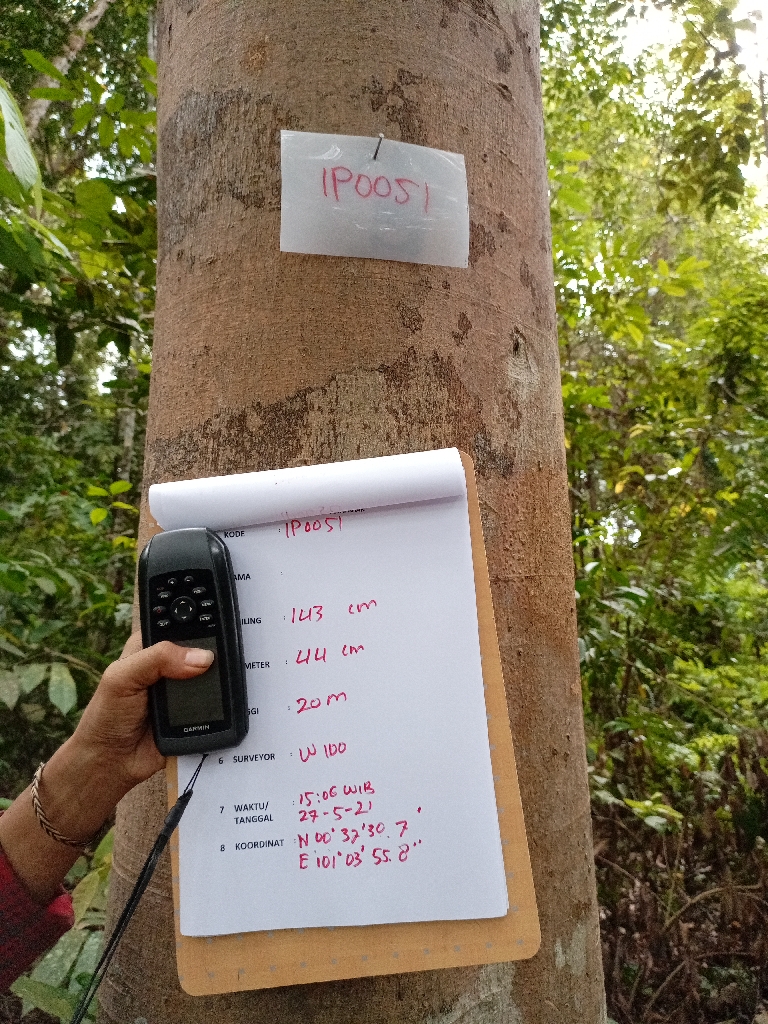 IP0051
KODE : IP0051
AMA :
ILING : 143 cm
METER : 44 cm
GGI : 20 m
6 SURVEYOR : W 100
7 WAKTU/ TANGGAL : 15:06 WIB
27-5-21
8 KOORDINAT : N 00° 37' 30.7"
E 101° 03' 55.8"
GARMIN